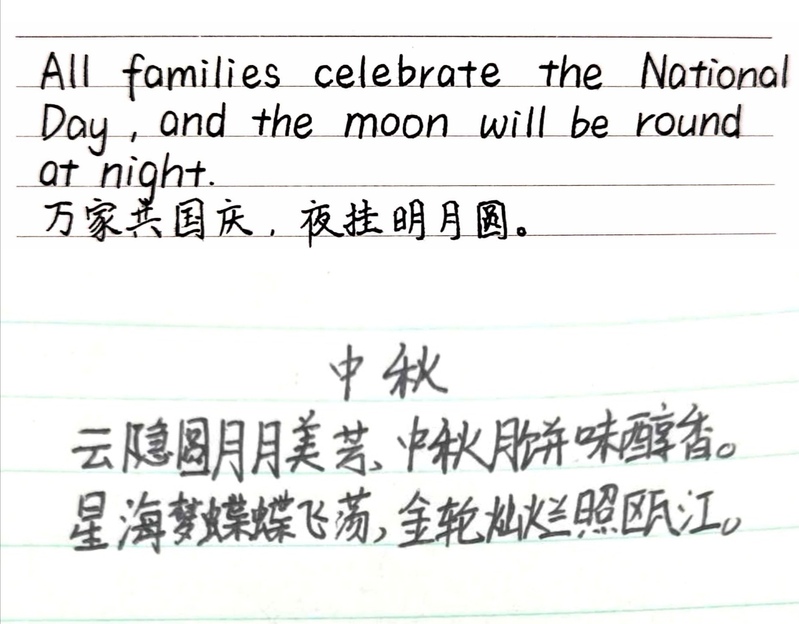 All families celebrate the National
Day, and the moon will be round
at night.
万家共国庆，夜挂明月圆。
中秋
云隐圆月月美芸、中秋月饼味醇香。
星海梦蝶蝶飞荡，金轮灿烂照瓯江。